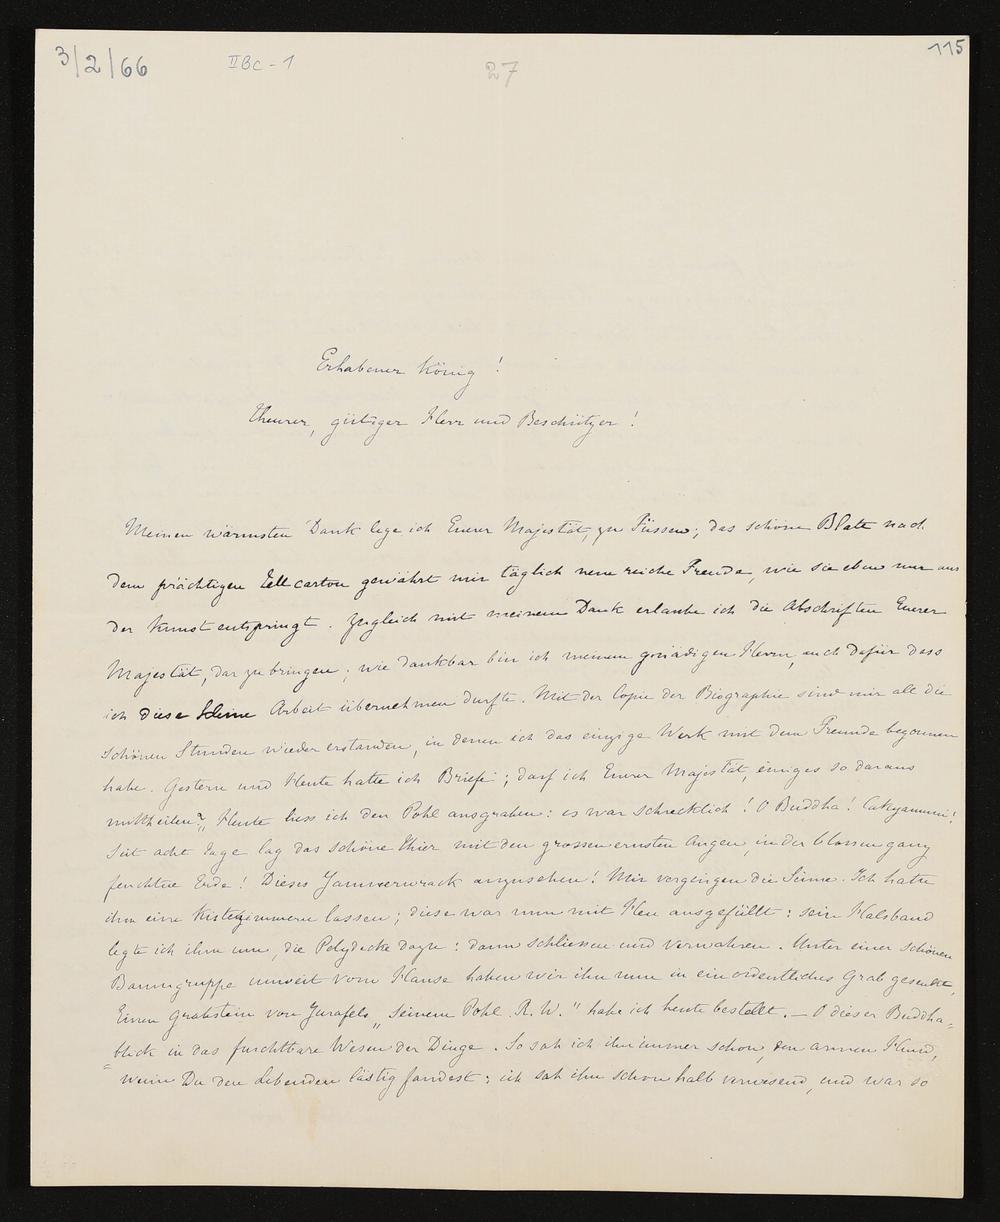 3/2/66
II B c - 1
27
115
Erhabener König !
Theurer, gütiger Herr und Beschützer !
Meinen wärmsten Dank lege ich Eurer Majestät, zu Füssen; das schöne Blatt nach
dem prächtigen Tell carton gewährt mir täglich neue reiche Freude, wie sie eben nur aus
der Kunst entspringt. Zugleich mit meinem Dank erlaube ich die Abschriften Eurer
Majestät, dar zu bringen; wie dankbar bin ich meinem gnädigen Herrn, auch dafür dass
ich diese kleine Arbeit übernehmen durfte. Mit der Copie der Biographie sind mir all die
schönen Stunden wieder erstanden, in denen ich das einzige Werk mit dem Freunde begonnen
habe. Gestern und Heute hatte ich Briefe; darf ich Eurer Majestät, einiges so daraus
mittheilen? „Heute liess ich den Pohl ausgraben: es war schrecklich! O Buddha! Cakyamuni!
Seit acht Tage lag das schöne Thier mit den grossen ernsten Augen, in der blossen ganz
feuchten Erde! Dieses Jammerwrack anzusehen! Mir vergingen die Sinne. Ich hatte
ihm eine Kiste zimmern lassen; diese war nun mit Heu ausgefüllt: sein Halsband
legte ich ihm um, die Polydecke dazu: dann schliessen und verwahren. Unter einer schönen
Baumgruppe unweit vom Hause haben wir ihn nun in ein ordentliches Grab gesenkt,
Einen Grabstein von Jurafels „Seinem Pohl. R. W." habe ich heute bestellt. — O dieser Buddha=
=blick in das furchtbare Wesen der Dinge. So sah ich ihn immer schon, den armen Hund,
wenn Du den Lebenden lästig fandest: ich sah ihn schon halb verwesend, und war so